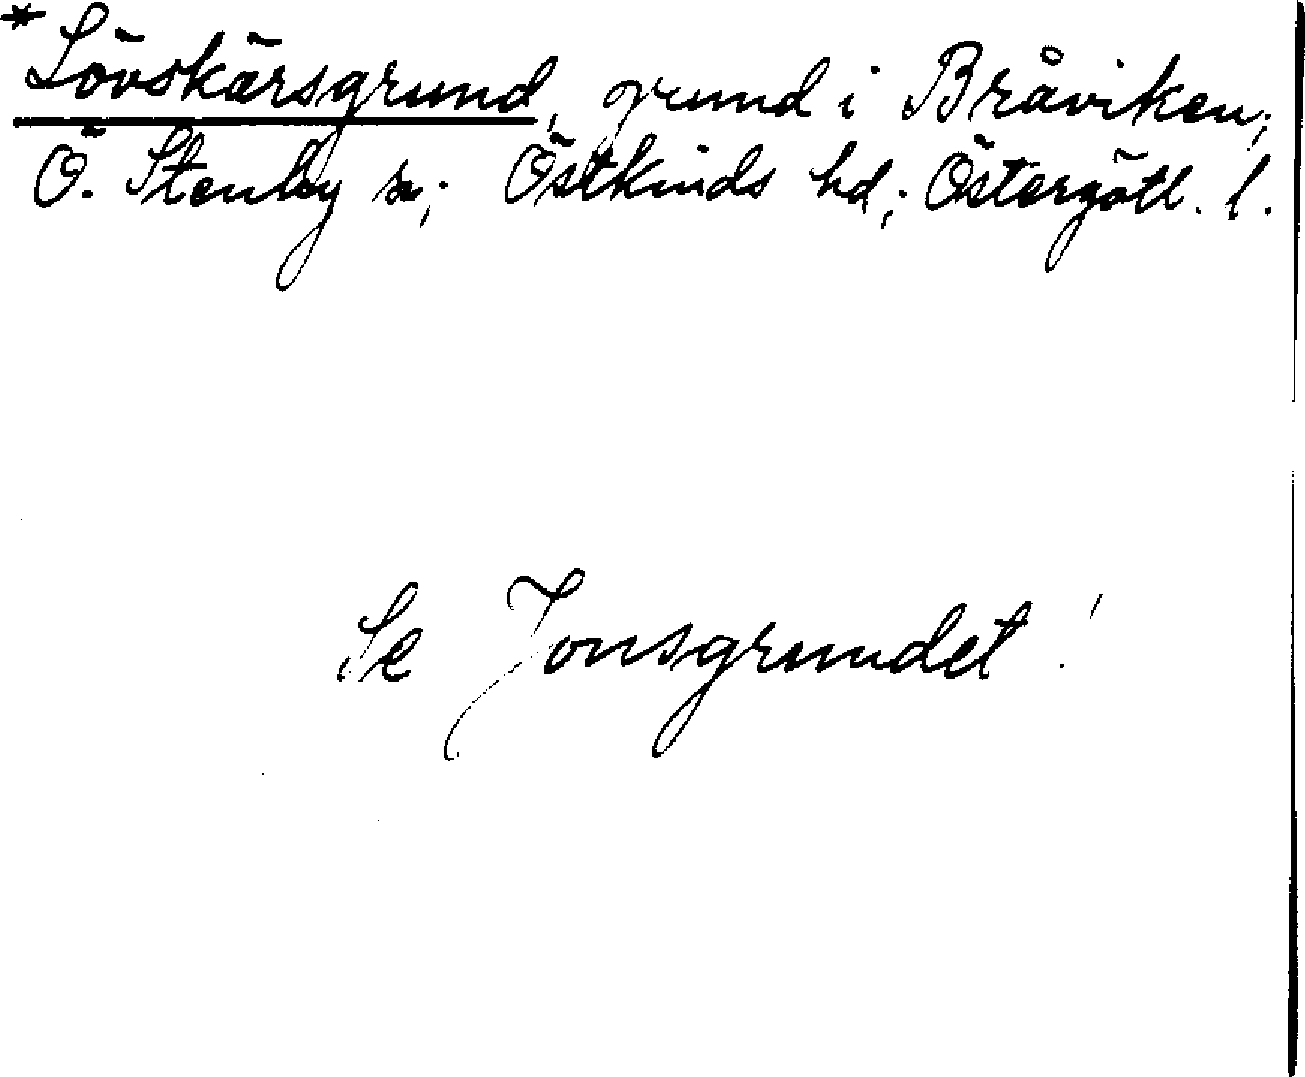 *Lövskärsgrund, grund i Bråviken;
Ö. Stenby sn; Östkinds hd; Östergötl. l.
Se Jonsgrundet!